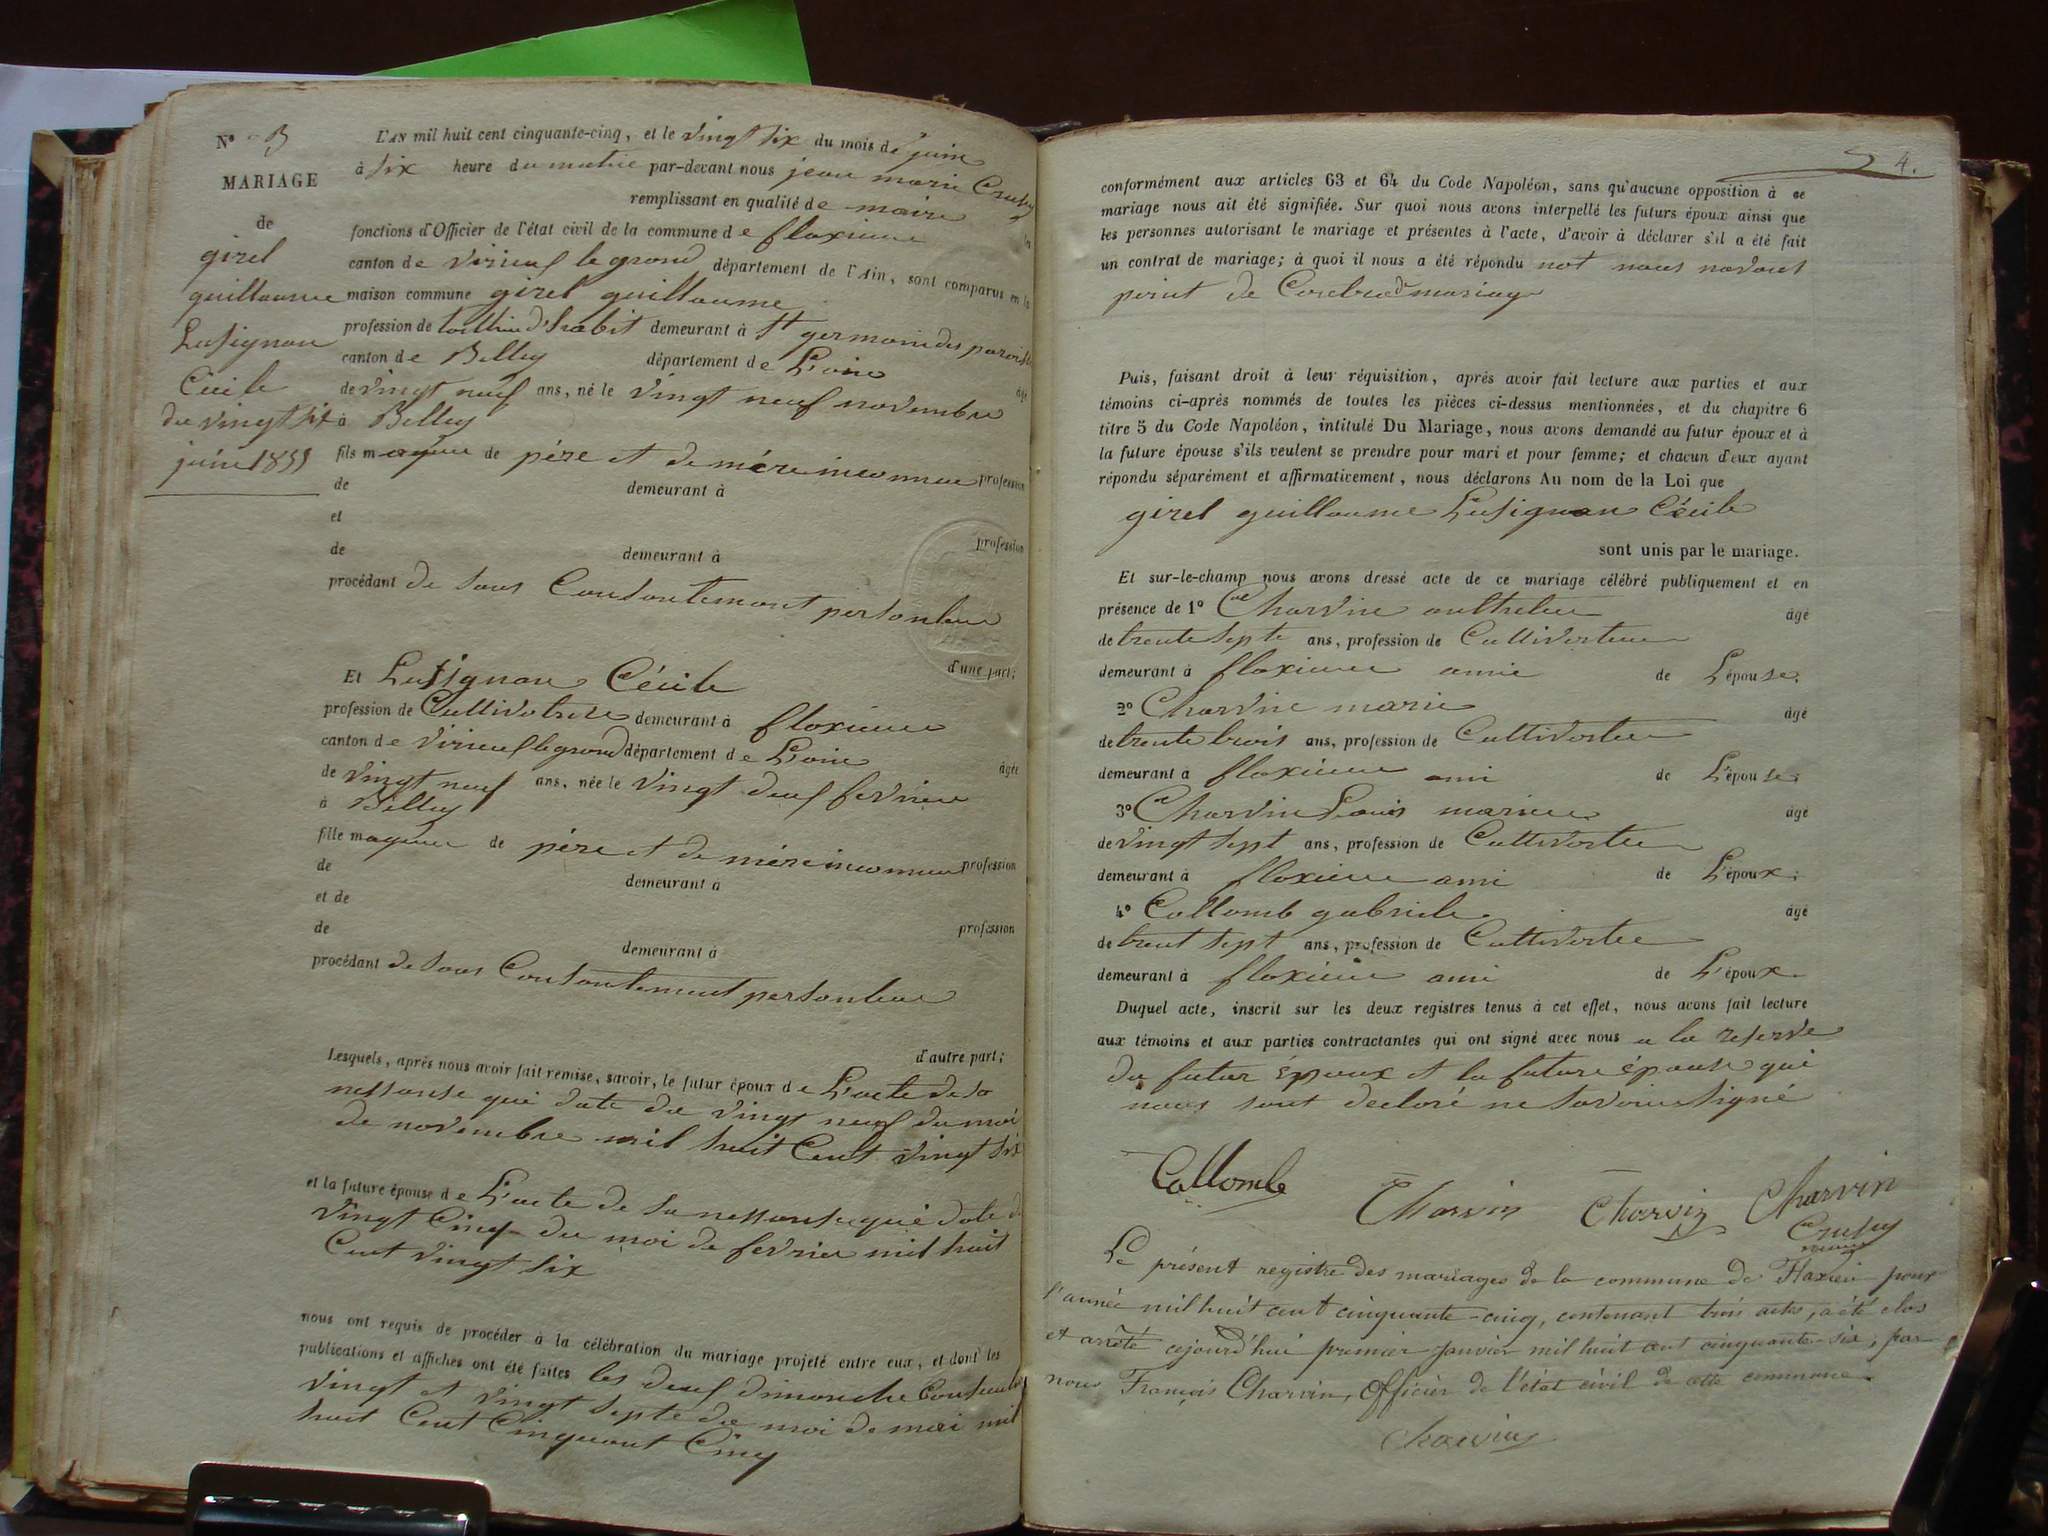 N° 3
MARIAGE
de
girel
guillaume
Lusignan
Cécile
du vingt six
juin 1855
L'AN mil huit cent cinquante-cinq, et le vingt six du mois de juin
à six heure du matin par-devant nous jean marie Crussy
remplissant en qualité de maire les
fonctions d'Officier de l'état civil de la commune de flaxieu
canton de virieux le grand département de l'Ain, sont comparus en la
maison commune girel guillaume
profession de d'habit demeurant à St germain des paroisse
canton de Belley département de L'ain âgé
de vingt neuf ans, né le vingt neuf novembre
à Belley
fils mageur de père et de mère inconnue profession
de demeurant à
et
profession
de demeurant à
procédant de sous Consontement personleur
d'une part;
Et Lusignan Cécile
profession de Cultivatrise demeurant à flaxieu
canton de virieux le grand département de L'ain âgée
de vingt neuf ans, née le vingt deuf fevrier
à Belley
fille mageur de père et de mère inconnue profession
de demeurant à
et de
profession
de demeurant à
procédant de sous Consontement personleur
d'autre part;
Lesquels, après nous avoir fait remise, savoir, le futur époux de L'acte de sa
nessanse qui date du vingt neuf du moi
de novembre mil huit Cent vingt six
et la future épouse de L'acte de sa nessanse qui date du
vingt Cinq du moi de fevrier mil huit
Cent vingt six
nous ont requis de procéder à la célébration du mariage projeté entre eux, et dont les
publications et affiches ont été faites les deuf dimanche
vingt et vingt septe du moi de mai mil
huit Cent Cinquant Cinq
4.
conformément aux articles 63 et 64 du Code Napoléon, sans qu'aucune opposition à ce
mariage nous ait été signifiée. Sur quoi nous avons interpellé les futurs époux ainsi que
les personnes autorisant le mariage et présentes à l'acte, d'avoir à déclarer s'il a été fait
un contrat de mariage; à quoi il nous a été répondu not nous navons
point de mariage
Puis, faisant droit à leur réquisition, après avoir fait lecture aux parties et aux
témoins ci-après nommés de toutes les pièces ci-dessus mentionnées, et du chapitre 6
titre 5 du Code Napoléon, intitulé Du Mariage, nous avons demandé au futur époux et à
la future épouse s'ils veulent se prendre pour mari et pour femme; et chacun d'eux ayant
répondu séparément et affirmativement, nous déclarons Au nom de la Loi que
girel guillaume Lusignan Cécile
sont unis par le mariage.
Et sur-le-champ nous avons dressé acte de ce mariage célébré publiquement et en
présence de 1° Charvin anthelme âgé
de trente septe ans, profession de Cultivateur
demeurant à flaxieu amie de L'épouse.
2° Charvin marie âgé
de trente trois ans, profession de Cultivateur
demeurant à flaxieu ami de L'épouse;
3° Charvin Louis marieu âgé
de vingt sept ans, profession de Cultivateur
demeurant à flaxieu ami de L'époux;
4° Collomb gabriele âgé
de trent sept ans, profession de Cultivateur
demeurant à flaxieu ami de L'époux
Duquel acte, inscrit sur les deux registres tenus à cet effet, nous avons fait lecture
aux témoins et aux parties contractantes qui ont signé avec nous a la reserve
du futur époux et la future épouse qui
nous sont decloré ne savoir signé
Collombe Charvin Charvin Charvin
Crussy
maire
Le présent registre des mariages de la commune de Flaxieu pour
l'année mil huit cent cinquante-cinq, contenant trois actes, a été clos
et arrêté cejourd'hui premier janvier mil huit cent cinquante-six, par
nous François Charvin, Officier de l'état civil de cette commune.
Charvin